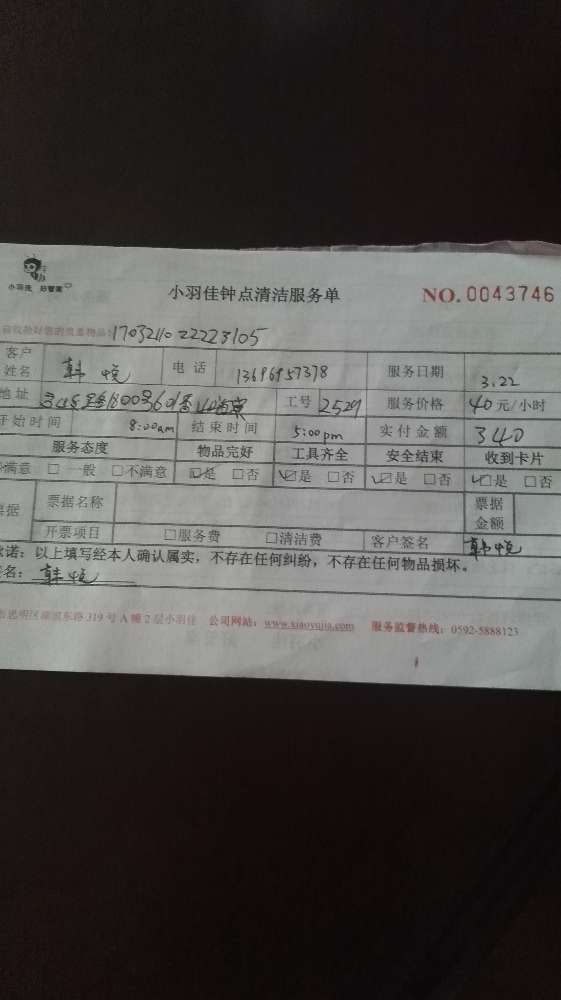 小羽佳 好管家
小羽佳钟点清洁服务单 NO.0043746
请收拾好您的贵重物品:1703211022223105
客户姓名 韩悦 电话 13696957378 服务日期 3.22
地址 800号601 工号 2529 服务价格 40元/小时
开始时间 8:00am 结束时间 5:00pm 实付金额 340
服务态度 物品完好 工具齐全 安全结束 收到卡片
满意 □一般 □不满意 ☑是 □否 ☑是 □否 ☑是 □否 ☑是 □否
票据名称 票据金额
开票项目 □服务费 □清洁费 客户签名 韩悦
承诺：以上填写经本人确认属实，不存在任何纠纷，不存在任何物品损坏。
签名：韩悦
思明区 东路319号A幢2层小羽佳 公司网站：www.xiaoyujia.com 服务监督热线：0592-5888123